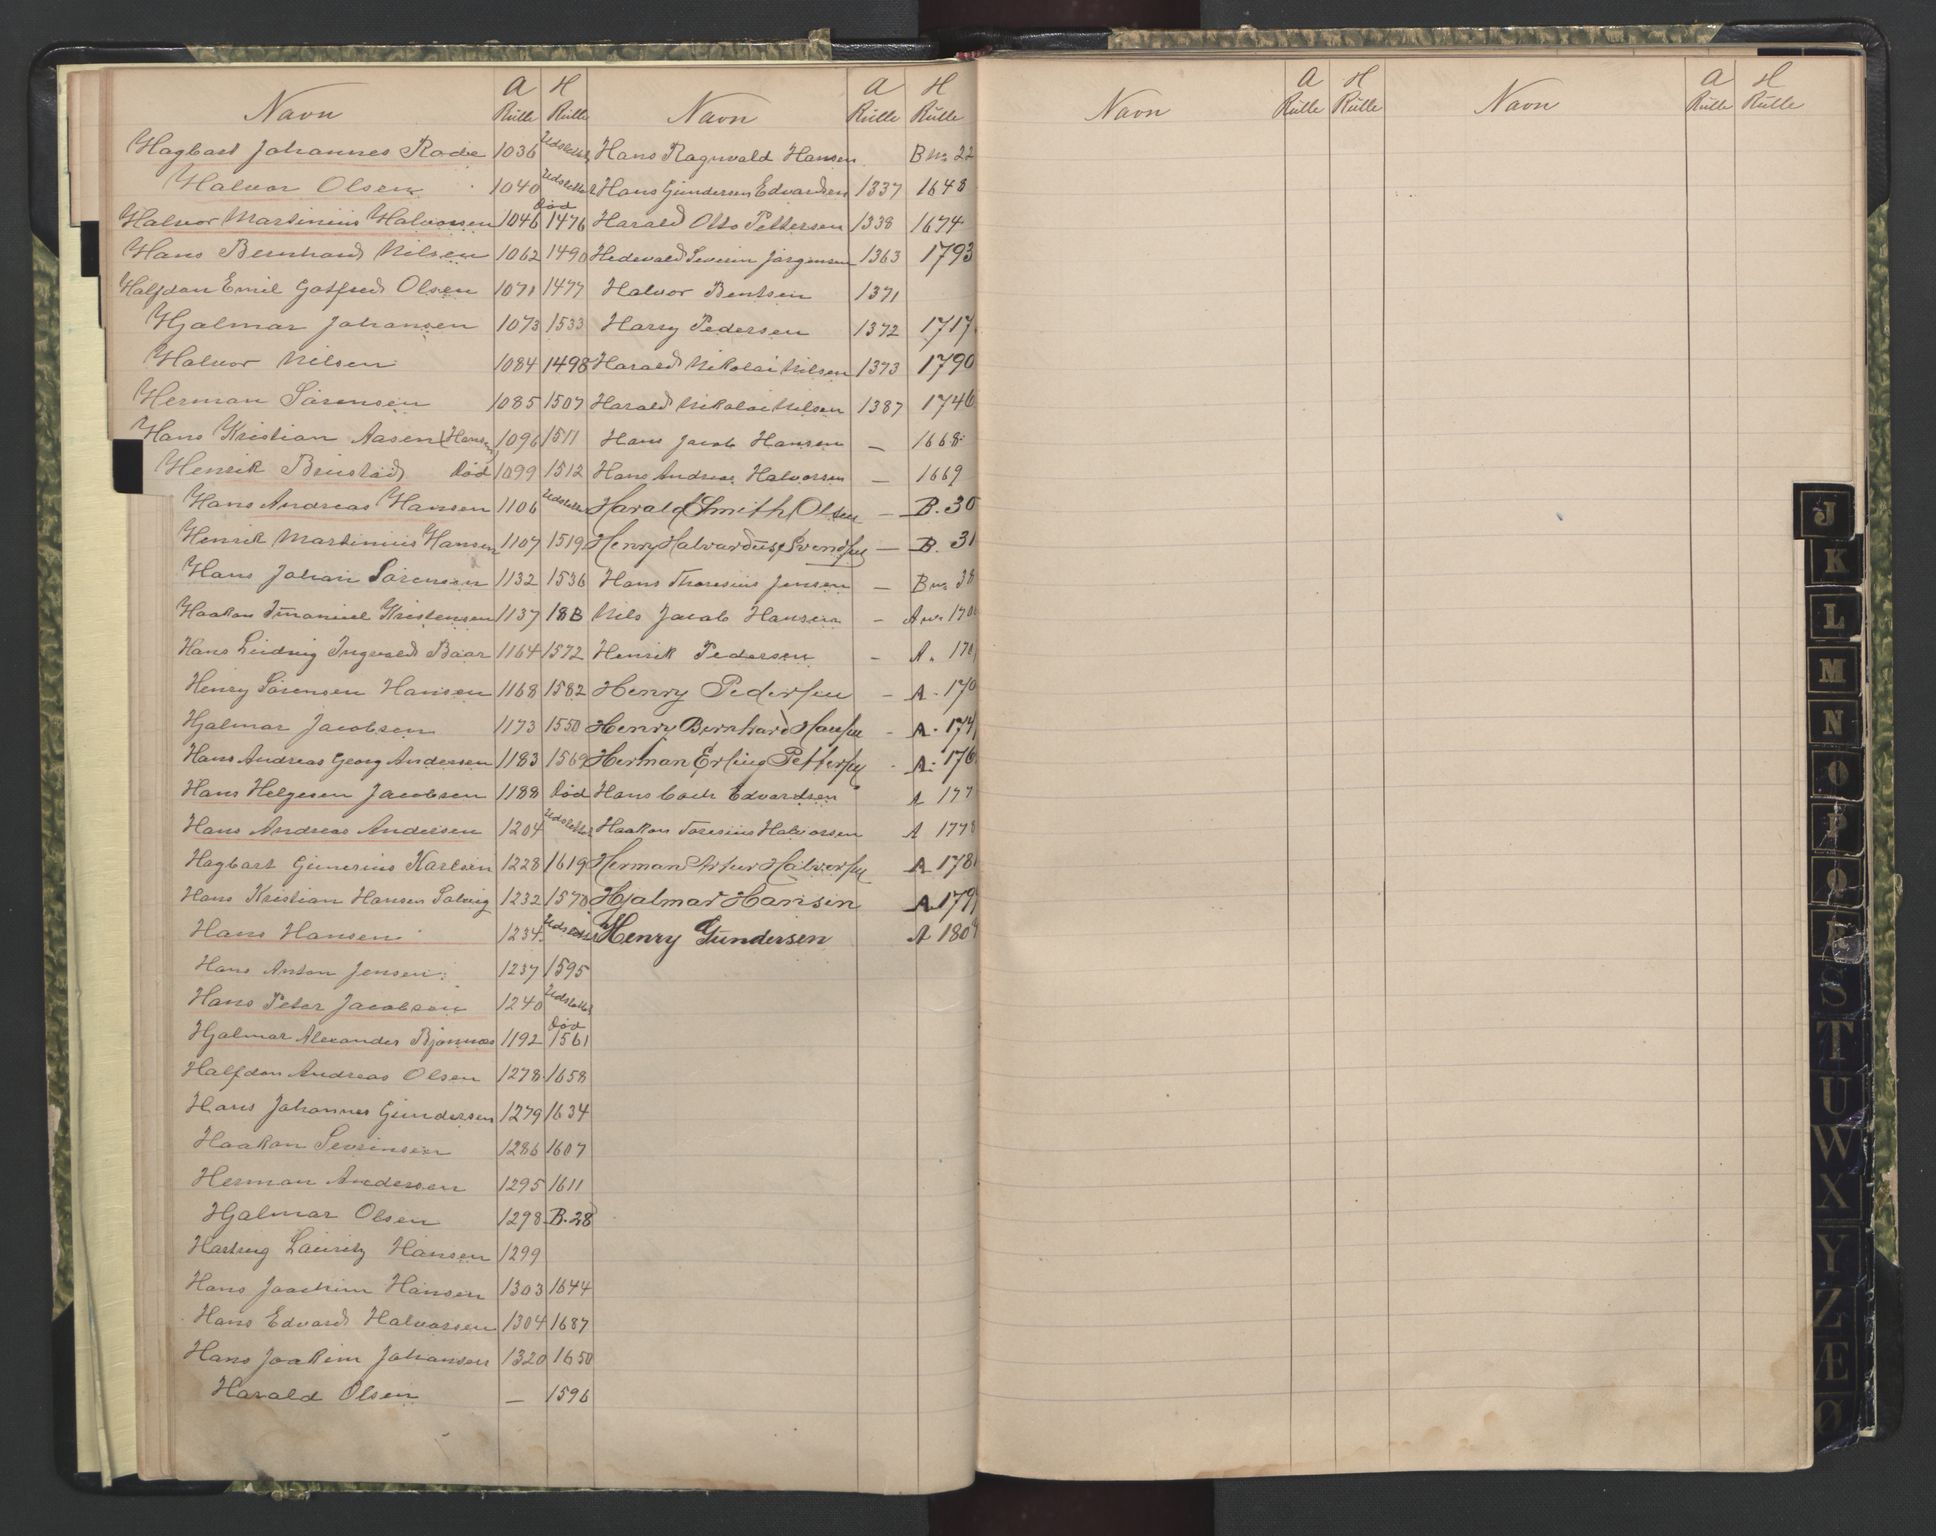 Navn A Rulle H Rulle
Hagbart Johannes Rode 1036 Udslettet
Halvor Olsen 1040 Udslettet
Halvor Martinius Halvorsen 1046 Død 1476
Hans Bernhard Nilsen 1062 1490
Halfdan Emil Gotfred Olsen 1071 1477
Hjalmar Johansen 1073 1533
Halvor Nilsen 1084 1498
Herman Sørensen 1085 1507
Hans Kristian Aasen (Hansen) 1096 1511
Henrik Brustad Død 1099 1512
Hans Andreas Hansen 1106 Udslettet
Henrik Martinius Hansen 1107 1519
Hans Johan Sørensen 1132 1536
Haakon Imanuel Kristensen 1137 18B
Hans Ludvig Ingvald Baar 1164 1572
Henry Sørensen Hansen 1168 1582
Hjalmar Jacobsen 1173 1550
Hans Andreas Georg Andersen 1183 1569
Hans Helgesen Jacobsen 1188 Død
Hans Andreas Andersen 1204 Udslettet
Hagbart Gunerius Karlsen 1228 1619
Hans Kristian Hansen Solvig 1232 1570
Hans Hansen 1234 Udslettet
Hans Anton Jensen 1237 1595
Hans Peter Jacobsen 1240 Udslettet
Hjalmar Alexander Bjønnæs 1192 Død 1561
Halfdan Andreas Olsen 1278 1658
Hans Johannes Gundersen 1279 1634
Haakon Severinsen 1286 1607
Herman Andersen 1295 1611
Hjalmar Olsen 1298 B.28
Hartvig Lauritz Hansen 1299
Hans Joachim Hansen 1303 1644
Hans Edvard Halvorsen 1304 1687
Hans Joakim Johansen 1320 1650
Harald Olsen — 1596
Navn A Rulle H Rulle
Hans Ragnvald Hansen B No 22
Hans Gundersen Edvardsen 1337 1648
Harald Otto Pettersen 1338 1674
Hedevald Severin Jørgensen 1363 1793
Halvor Bentsen 1371
Harry Pedersen 1372 1717
Harald Nikolai Nilsen 1373 1790
Harald Nikolai Nilsen 1387 1746
Hans Jacob Hansen — 1668
Hans Andreas Halvorsen — 1669
Harald Smith Olsen — B. 30
Henry Halvardus Svendsen — B. 31
Hans Thoresius Jensen — B No 38
Nils Jacob Hansen — A No 170
Henrik Pedersen — A. 170
Henry Pedersen — A. 170
Henry Bernhard Hansen — A. 174
Herman Erling Pettersen — A. 176
Hans Edvardsen A 177
Haakon Toresius Halvorsen A 1778
Herman Artur Halvorsen A 178
Hjalmar Hansen A 179
Henry Gundersen A 1804
Navn A Rulle H Rulle Navn A Rulle H Rulle
J
K
L
M
N
O
P
Q
R
S
T
U
W
X
Y
Z
Æ
Ø